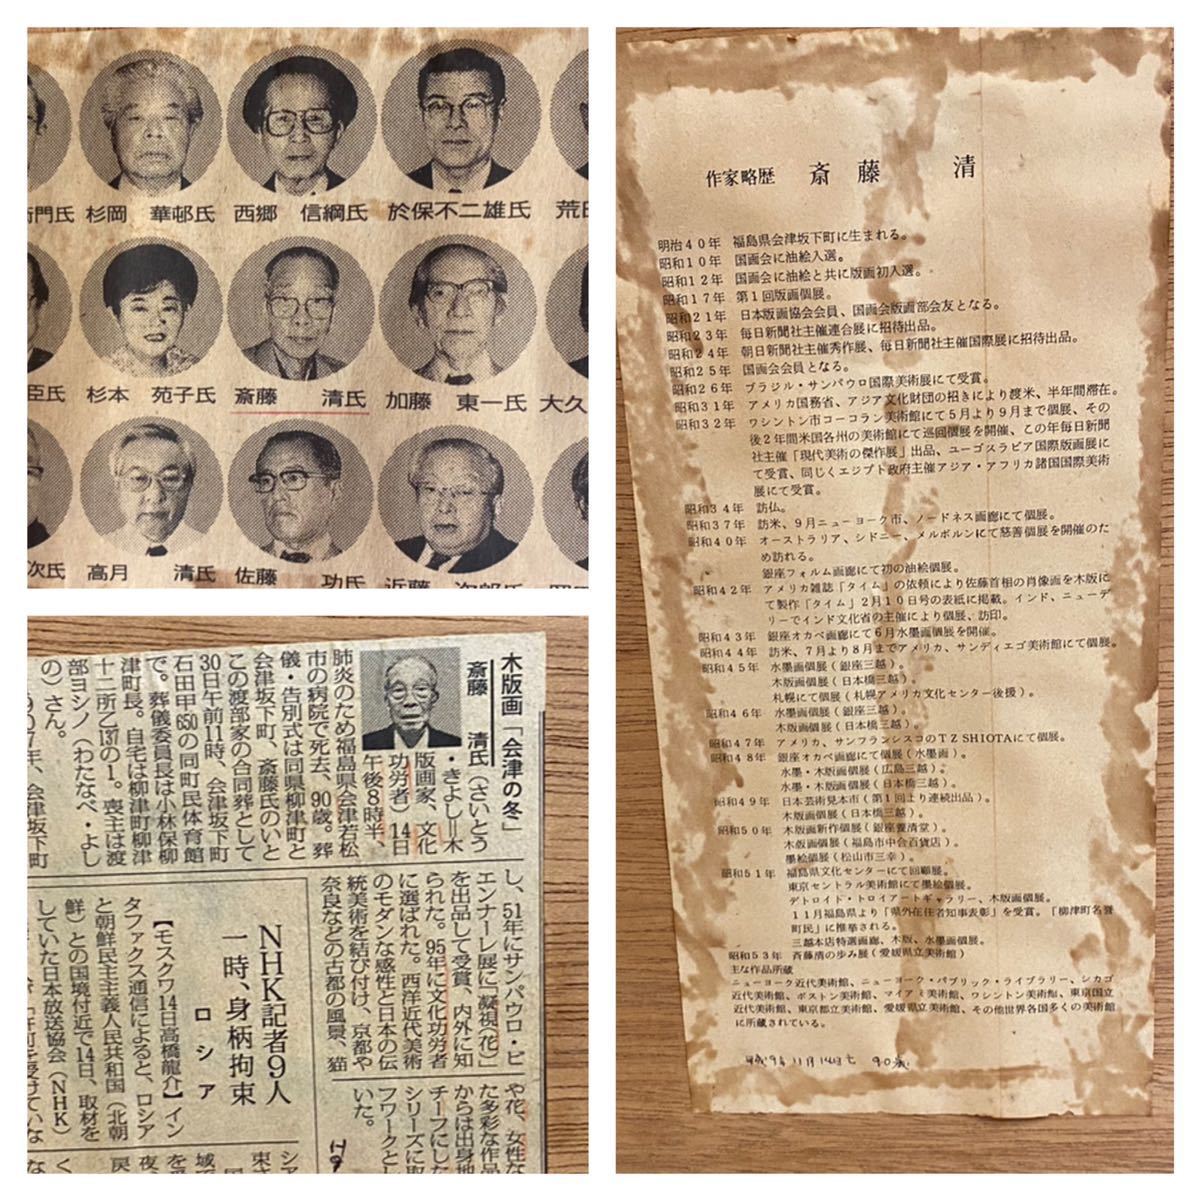 衛門氏 杉岡 華邨氏 西郷 信綱氏 於保不二雄氏 荒田
臣氏 杉本 苑子氏 斎藤 清氏 加藤 東一氏 大久
次氏 高月 清氏 佐藤 功氏 近藤 次郎氏
木版画「会津の冬」
斎藤 清氏(さいとう
・きよし＝木
版画家、文化
功労者)14日
午後8時半、
肺炎のため福島県会津若松
市の病院で死去、90歳。葬
儀・告別式は同県柳津町と
会津坂下町、斎藤氏のいと
この渡部家の合同葬として
30日午前11時、会津坂下町
石田甲650の同町民体育館
で。葬儀委員長は小林保柳
津町長。自宅は柳津町柳津
十二所乙137の1。喪主は渡
部ヨシノ(わたなべ・よし
の)さん。
1907年、会津坂下町
し、51年にサンパウロ・ビ
エンナーレ展に「凝視(花)」
を出品して受賞、内外に知
られた。95年に文化功労者
に選ばれた。西洋近代美術
のモダンな感性と日本の伝
統美術を結び付け、京都や
奈良などの古都の風景、猫
や花、女性な
た多彩な作品
からは出身地
チーフにした
シリーズに取
フワークとし
いた。
H9
NHK記者9人
一時、身柄拘束
ロシア
【モスクワ14日高橋龍介】イン
タファクス通信によると、ロシア
と朝鮮民主主義人民共和国(北朝
鮮)との国境付近で14日、取材を
していた日本放送協会(NHK)
作家略歴 斎藤 清
明治40年 福島県会津坂下町に生まれる。
昭和10年 国画会に油絵入選。
昭和12年 国画会に油絵と共に版画初入選。
昭和17年 第1回版画個展。
昭和21年 日本版画協会会員、国画会版画部会友となる。
昭和23年 毎日新聞社主催連合展に招待出品。
昭和24年 朝日新聞社主催秀作展、毎日新聞社主催国際展に招待出品。
昭和25年 国画会会員となる。
昭和26年 ブラジル・サンパウロ国際美術展にて受賞。
昭和31年 アメリカ国務省、アジア文化財団の招きにより渡米、半年間滞在。
昭和32年 ワシントン市コーコラン美術館にて5月より9月まで個展、その
後2年間米国各州の美術館にて巡回個展を開催、この年毎日新聞
社主催「現代美術の傑作展」出品、ユーゴスラビア国際版画展に
て受賞、同じくエジプト政府主催アジア・アフリカ諸国国際美術
展にて受賞。
昭和34年 訪仏。
昭和37年 訪米、9月ニューヨーク市、ノードネス画廊にて個展。
昭和40年 オーストラリア、シドニー、メルボルンにて慈善個展を開催のた
め訪れる。
銀座フォルム画廊にて初の油絵個展。
昭和42年 アメリカ雑誌「タイム」の依頼により佐藤首相の肖像画を木版に
て製作「タイム」2月10日号の表紙に掲載。インド、ニューデ
リーでインド文化省の主催により個展、訪印。
昭和43年 銀座オカベ画廊にて6月水墨画個展を開催。
昭和44年 訪米、7月より8月までアメリカ、サンディエゴ美術館にて個展。
昭和45年 水墨画個展(銀座三越)。
木版画個展(日本橋三越)。
札幌にて個展(札幌アメリカ文化センター後援)。
昭和46年 水墨画個展(銀座三越)。
木版画個展(日本橋三越)。
昭和47年 アメリカ、サンフランシスコのTZ SHIOTAにて個展。
昭和48年 銀座オカベ画廊にて個展(水墨画)。
水墨・木版画個展(広島三越)。
水墨・木版画個展(日本橋三越)。
昭和49年 日本芸術見本市(第1回より連続出品)。
木版画個展(日本橋三越)。
昭和50年 木版画新作個展(銀座養清堂)。
木版画個展(福島市中合百貨店)。
墨絵個展(松山市三幸)。
昭和51年 福島県文化センターにて回顧展。
東京セントラル美術館にて墨絵個展。
デトロイド・トロイアートギャラリー、木版画個展。
11月福島県より「県外在住者知事表彰」を受賞。「柳津町名誉
町民」に推挙される。
三越本店特選画廊、木版、水墨画個展。
昭和53年 斉藤清の歩み展(愛媛県立美術館)
主な作品所蔵
ニューヨーク近代美術館、ニューヨーク・パブリック・ライブラリー、シカゴ
近代美術館、ボストン美術館、マイアミ美術館、ワシントン美術館、東京国立
近代美術館、東京都立美術館、愛媛県立美術館、その他世界各国多くの美術館
に所蔵されている。
平成9年11月14日亡 90歳